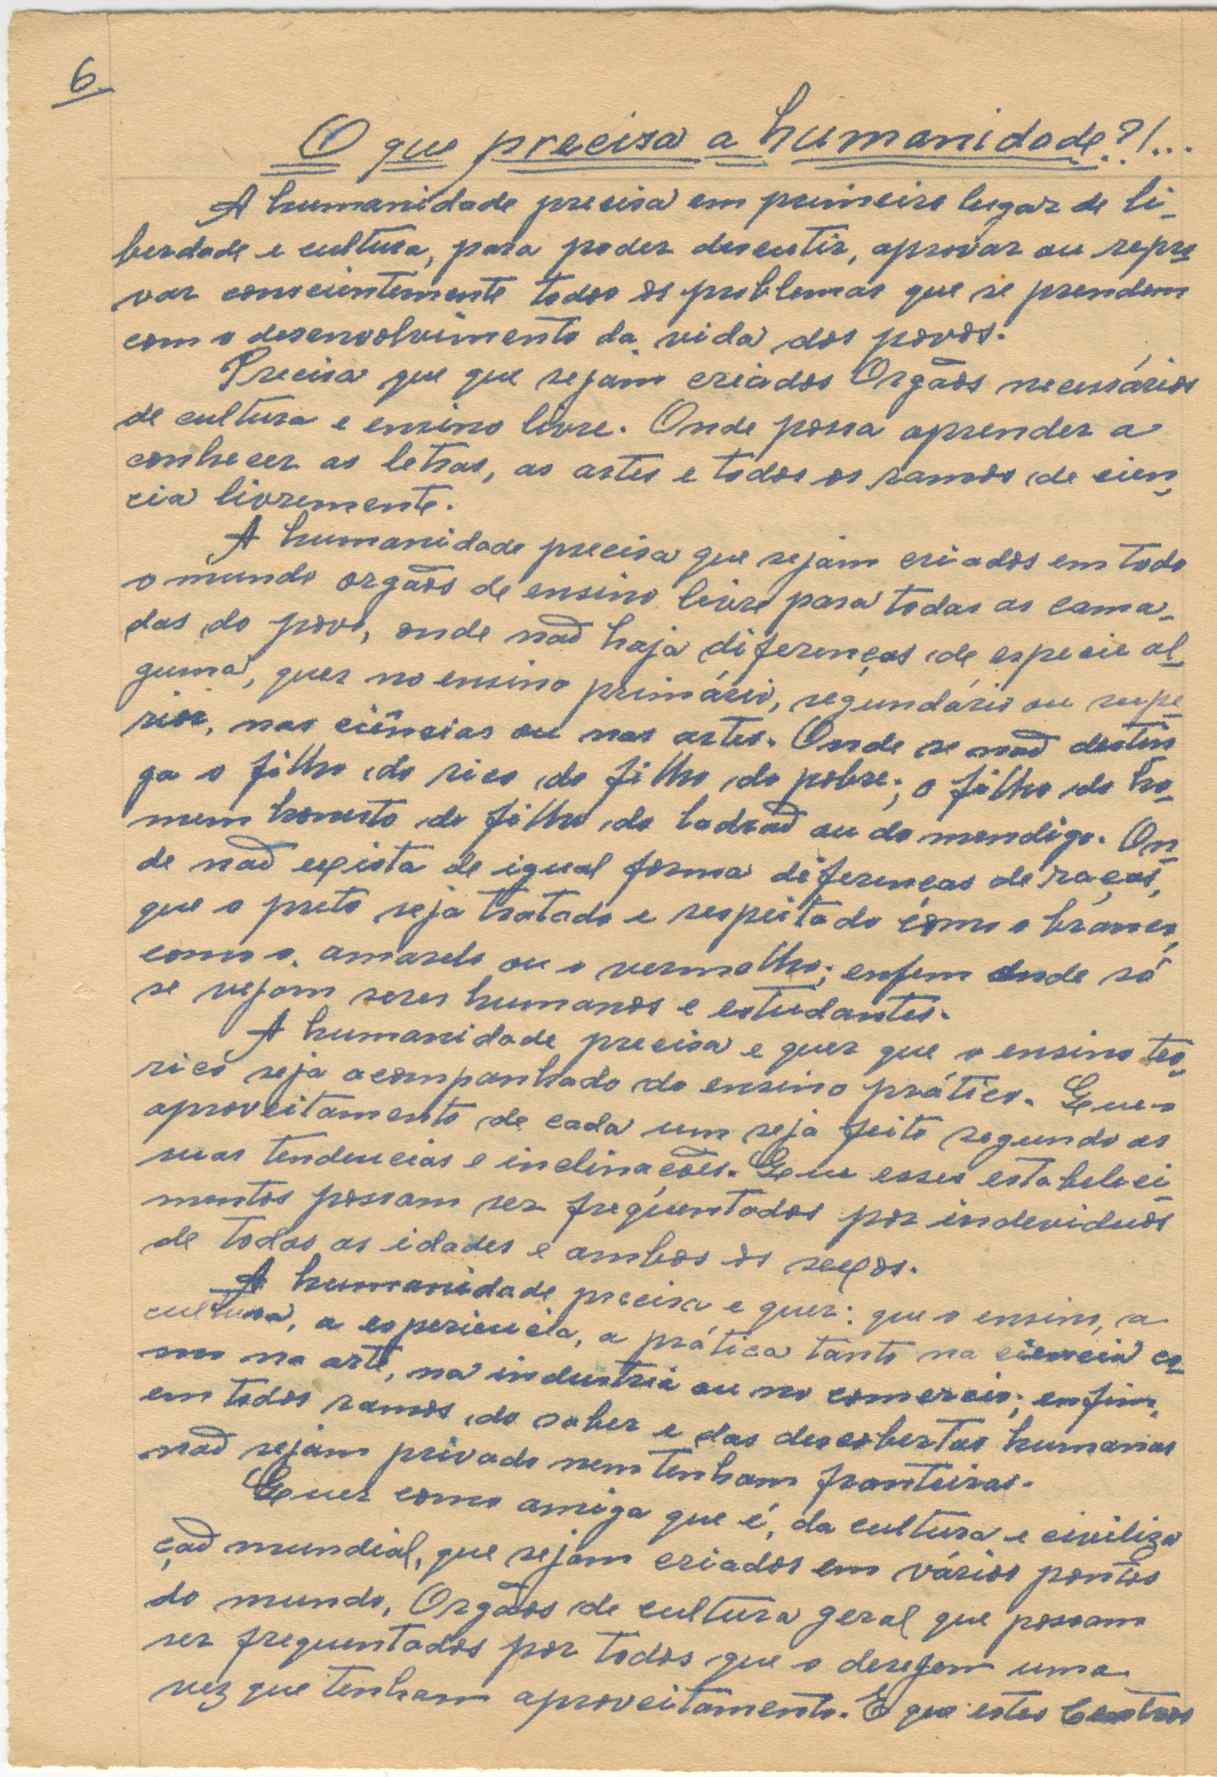 6.
O que precisa a humanidade?!...
A humanidade precisa em primeiro lugar de li-
berdade e cultura, para poder descutir, aprovar ou repro
var conscientemente todos os problemas que se prendem
com o desenvolvimento da vida dos povos.
Precisa que que sejam criados Orgãos necessários
de cultura e ensino livre. Onde possa aprender a
conhecer as letras, as artes e todos os ramos de cien-
cia livremente.
A humanidade precisa que sejam criados em todo
o mundo orgãos de ensino livre para todas as cama-
das do povo, onde naõ haja diferenças de especie al-
guma, quer no ensino primário, segundário ou supe-
rior, nas ciências ou nas artes. Onde se naõ destin
ga o filho do rico do filho do pobre; o filho do ho-
mem honesto do filho do ladraõ ou do mendigo. On-
de naõ exista de igual forma diferenças de raças,
que o preto seja tratado e respeitado como o branco,
como o amarelo ou o vermelho; enfim onde só
se vejam seres humanos e estudantes.
A humanidade precisa e quer que o ensino teo-
rico seja acompanhado do ensino prático. Que o
aproveitamento de cada um seja feito segundo as
suas tendencias e inclinações. Que esses estabeleci-
mentos possam ser freqüentados por individuos
de todas as idades e ambos os sexos.
A humanidade precisa e quer: que o ensino, a
cultura, a esperiencia, a prática tanto na ciencia co-
mo na arte, na industria ou no comercio; enfim,
em todos ramos do saber e das descobertas humanas
naõ sejam privado nem tenham fronteiras.
Quer como amiga que é, da cultura e civiliza
çaõ mundial, que sejam criados em vários pontos
do mundo, Orgãos de cultura geral que possam
ser frequentados por todos que o desejem uma
vez que tenham aproveitamento. E que estes Centros